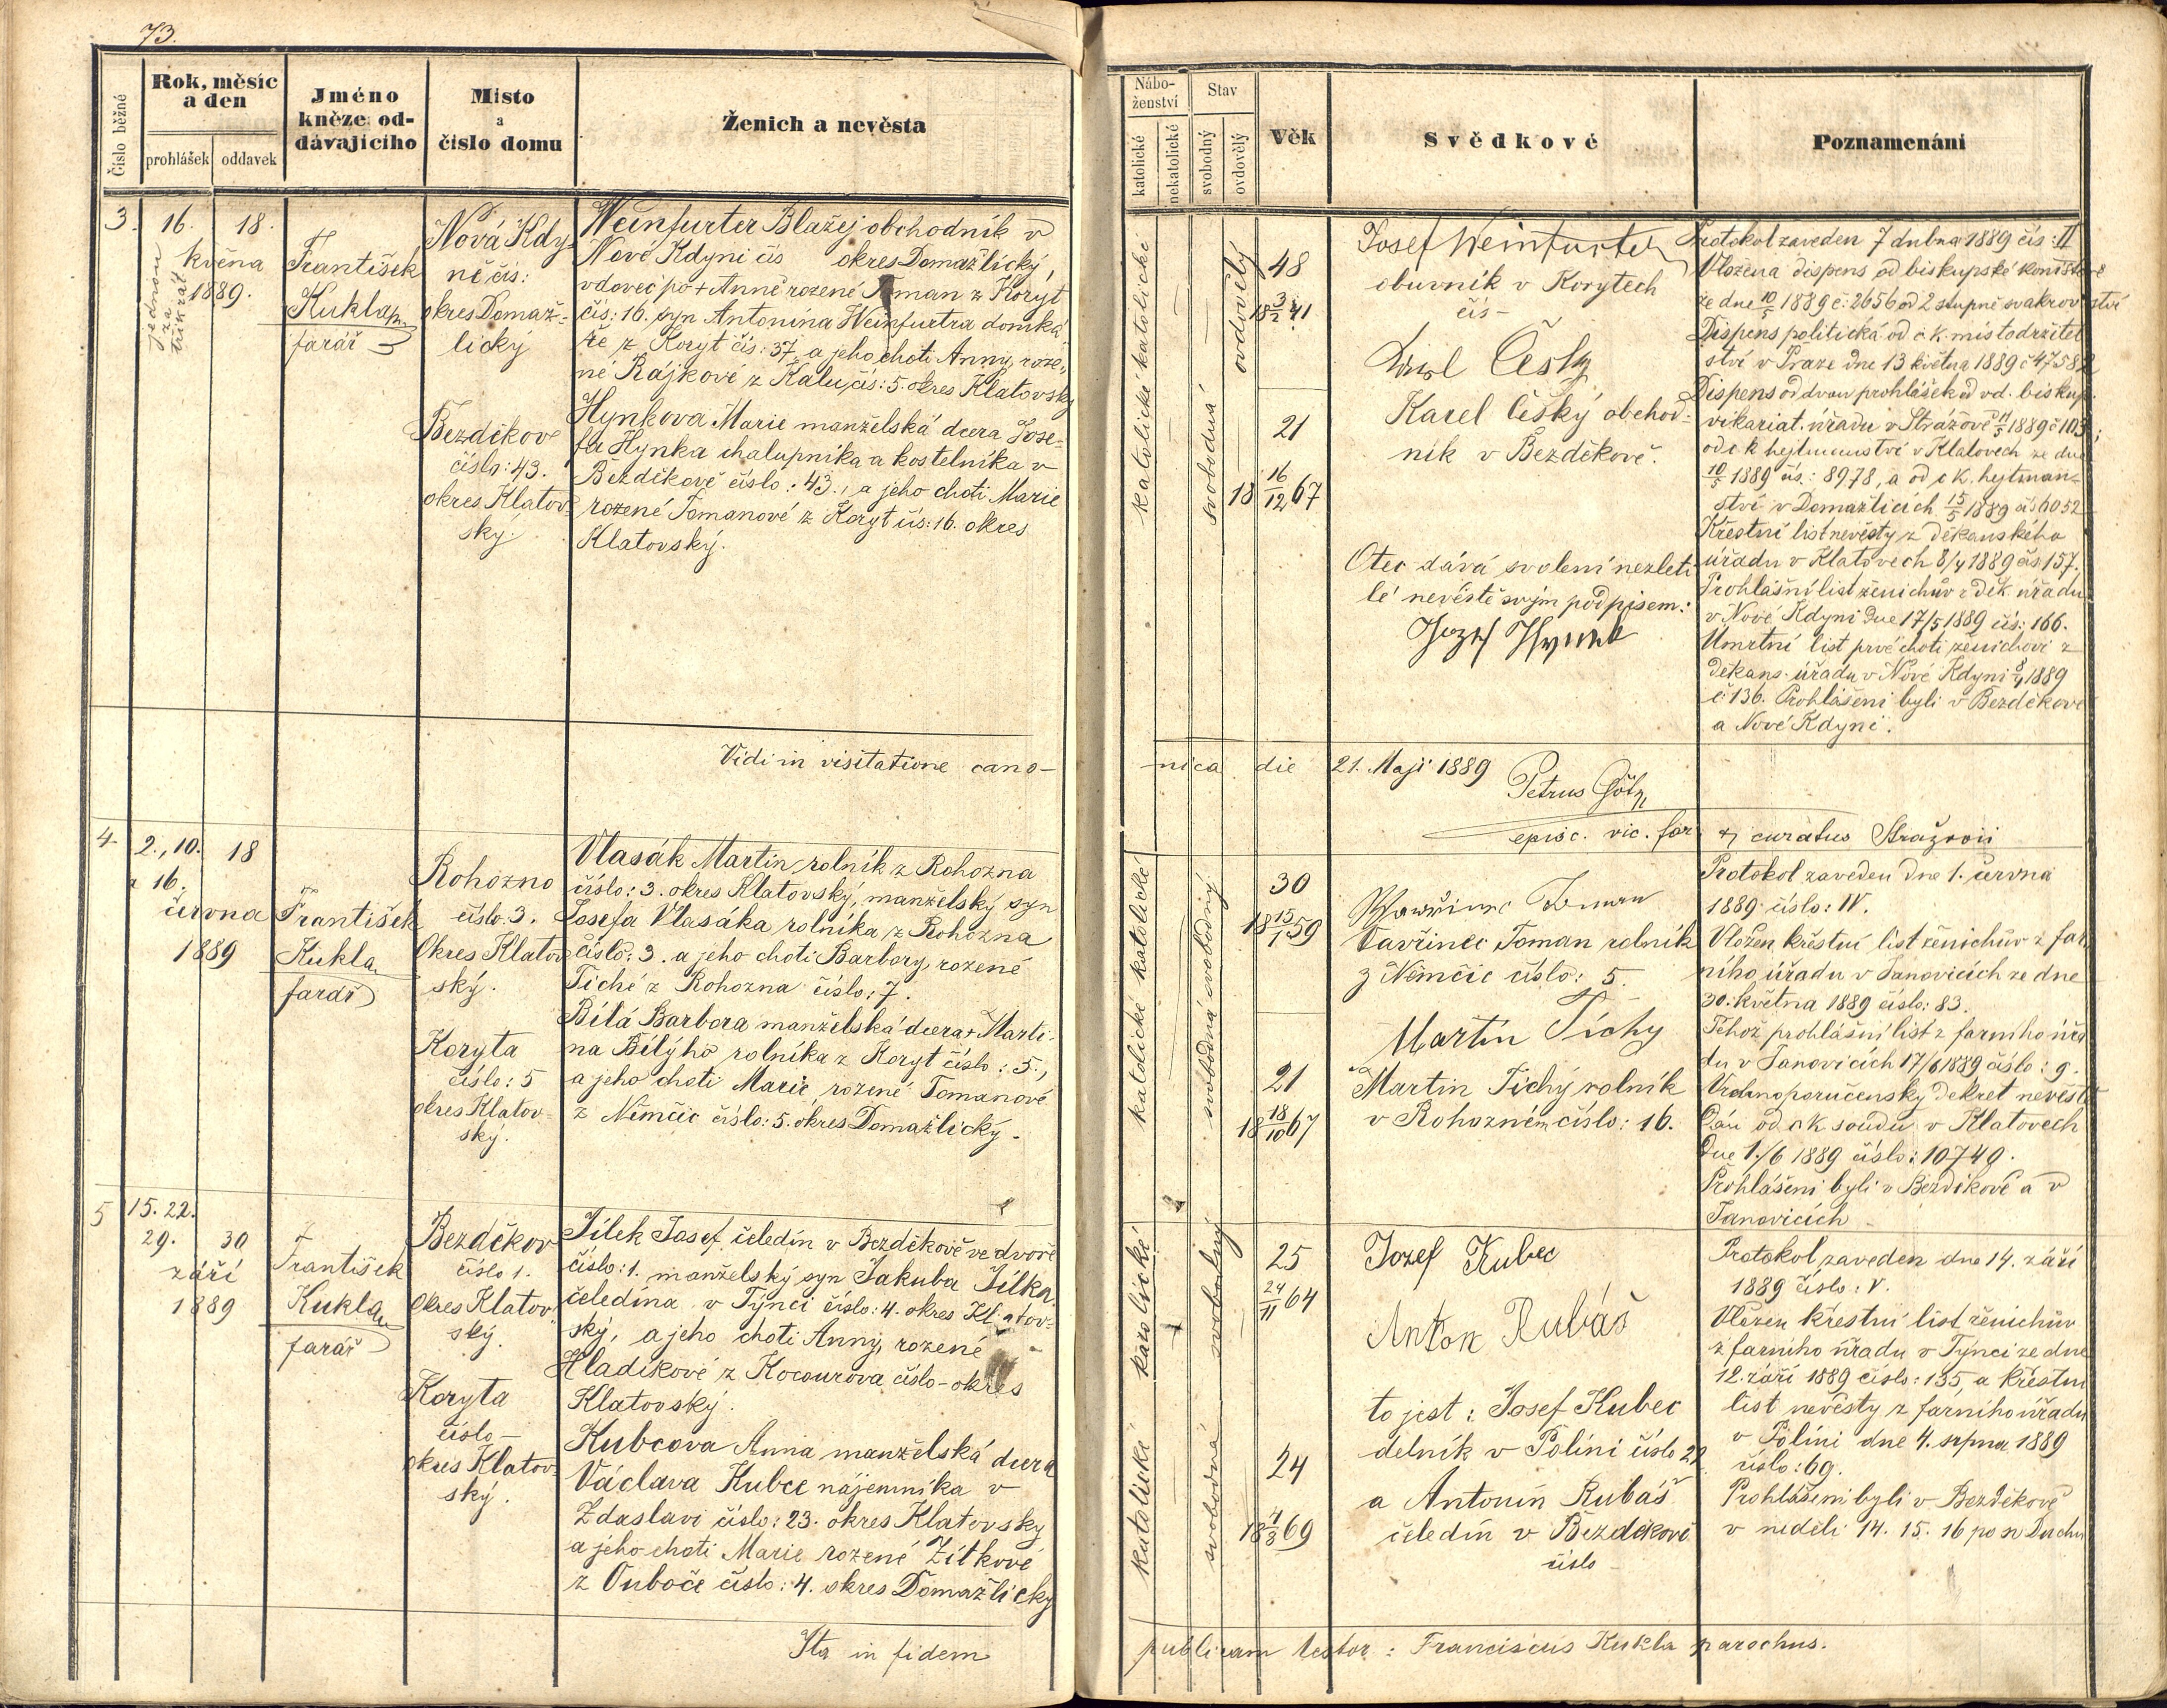 73.
Číslo běžné
Rok, měsíc
a den
prohlášek
oddavek
Jméno
kněze od-
dávajícího
Místo
a
číslo domu
Ženich a nevěsta
3.
16. 18.
května
1889.
jednou
za
třikrát
František
Kukla
farář
Nová Kdy-
ně čís:
okres Domaž-
lický
Weinfurter Blažej obchodník v
Nové Kdyni čís okres Domažlický,
vdovec po + Anně rozené Toman z Koryt
čís: 16. syn Antonína Weinfurtra domká-
ře z Koryt čís: 37. a jeho choti Anny, roze-
né Rájkové z Kalu, čís: 5. okres Klatovský
Bezděkov
číslo: 43.
okres Klatov-
ský.
Hynkova Marie manželská dcera Jose-
fa Hynka chalupníka a kostelníka v
Bezděkově číslo: 43., a jeho choti Marie
rozené Tomanové z Koryt čís: 16. okres
Klatovský.
Vidi in visitatione cano-
4.
2., 10. 18
a 16.
června
1889
František
Kukla
farář
Rohozno
číslo 3.
Okres Klatov
ský.
Vlasák Martin rolník z Rohozna
číslo: 3. okres Klatovský, manželský syn
Josefa Vlasáka rolníka z Rohozna
číslo: 3. a jeho choti Barbory, rozené
Tiché z Rohozna číslo: 7.
Koryta
číslo: 5
okres Klatov-
ský.
Bílá Barbora manželská dcera + Marti-
na Bílýho rolníka z Koryt číslo: 5.,
a jeho choti Marie, rozené Tomanové
z Němčic číslo: 5. okres Domažlický.
5
15. 22.
29. 30
září
1889
František
Kukla
farář
Bezděkov
číslo 1.
Okres Klatov-
ský.
Jílek Josef čeledín v Bezděkově ve dvoře
číslo: 1. manželský syn Jakuba Jílka
čeledína v Týnci číslo: 4. okres Klatov-
ský, a jeho choti Anny, rozené
Hladíkové z Kocourova číslo - okres
Klatovský.
Koryta
číslo -
okres Klatov-
ský.
Kubcova Anna manželská dcera
Václava Kubce nájemníka v
Zdaslavi číslo: 23. okres Klatovský
a jeho choti Marie rozené Žítkové
z Ouboče číslo: 4. okres Domažlický
Ita in fidem
Nábo-
ženství
Stav
katolické
nekatolické
svobodný
ovdovělý
Věk
Svědkové
Poznamenání
katolické katolické
svobodná
ovdovělý
48
18 3/2 41
21
18 16/12 67
Josef Weinfurter
obuvník v Korytech
čís -
Karel Český
Karel Český obchod-
ník v Bezděkově.
Otec dává svolení nezleti-
lé nevěstě svým podpisem:
Jozef Hynek
Protokol zaveden 7 dubna 1889 čís: II
Vložena dispens od biskupské konsistoře
ze dne 10/5 1889 č: 2656 od 2 stupně svakrovství
Dispens politická od c. k. místodržitel
ství v Praze dne 13 května 1889 č 47582
Dispens od dvou prohlášek od vd. biskup.
vikariat. úřadu v Strážově 11/5 1889 č 103;
od c. k hejtmanství v Klatovech ze dne
10/5 1889 čís: 8978, a od c k. hejtman-
ství v Domažlicích 15/5 1889 čís 6052
Křestní list nevěsty z děkanského
úřadu v Klatovech 8/4 1889 čís 157.
Prohlášní list ženichův z děk. úřadu
v Nové Kdyni dne 17/5 1889 čís: 166.
Úmrtní list prvé choti ženichově z
děkans. úřadu v Nové Kdyni 8/4 1889
č: 136. Prohlášeni byli v Bezděkově
a Nové Kdyni.
nica die 21. Maji 1889
Petrus Götz
episc. vic. for. & curatus Stražovii
katolické katolické
svobodná svobodný
30
18 15/1 59
21
18 18/10 67
Wawřinec Toman
Vavřinec Toman rolník
z Němčic číslo: 5.
Martin Tichy
Martin Tichý rolník
v Rohozném číslo: 16.
Protokol zaveden dne 1. června
1889 číslo: IV.
Vložen křestní list ženichův z far-
ního úřadu v Janovicích ze dne
30. května 1889 číslo: 83.
Téhož prohlášní list z farního úřa
du v Janovicích 17/6 1889 číslo: 9.
Vrchnoporučenský dekret nevěstě
dán od c k soudu v Klatovech
dne 1./6 1889 číslo: 10749.
Prohlášeni byli v Bezděkově a v
Janovicích
katolická katolické
svobodná svobodný
25
24/11 64
24
18 4/3 69
Jozef Kubec
Anton Rubáš
to jest: Josef Kubec
delník v Polini číslo 29
a Antonín Rubáš
čeledín v Bezděkově
číslo -
Protokol zaveden dne 14. září
1889 číslo: V.
Vložen křestní list ženichův
z farního úřadu v Týnci ze dne
12. září 1889 číslo: 135, a křestní
list nevěsty z farního úřadu
v Polini dne 4. srpna 1889
číslo: 69.
Prohlášeni byli v Bezděkově
v neděli 14. 15. 16 po sv Duchu
publicam testor: Franciscus Kukla parochus.